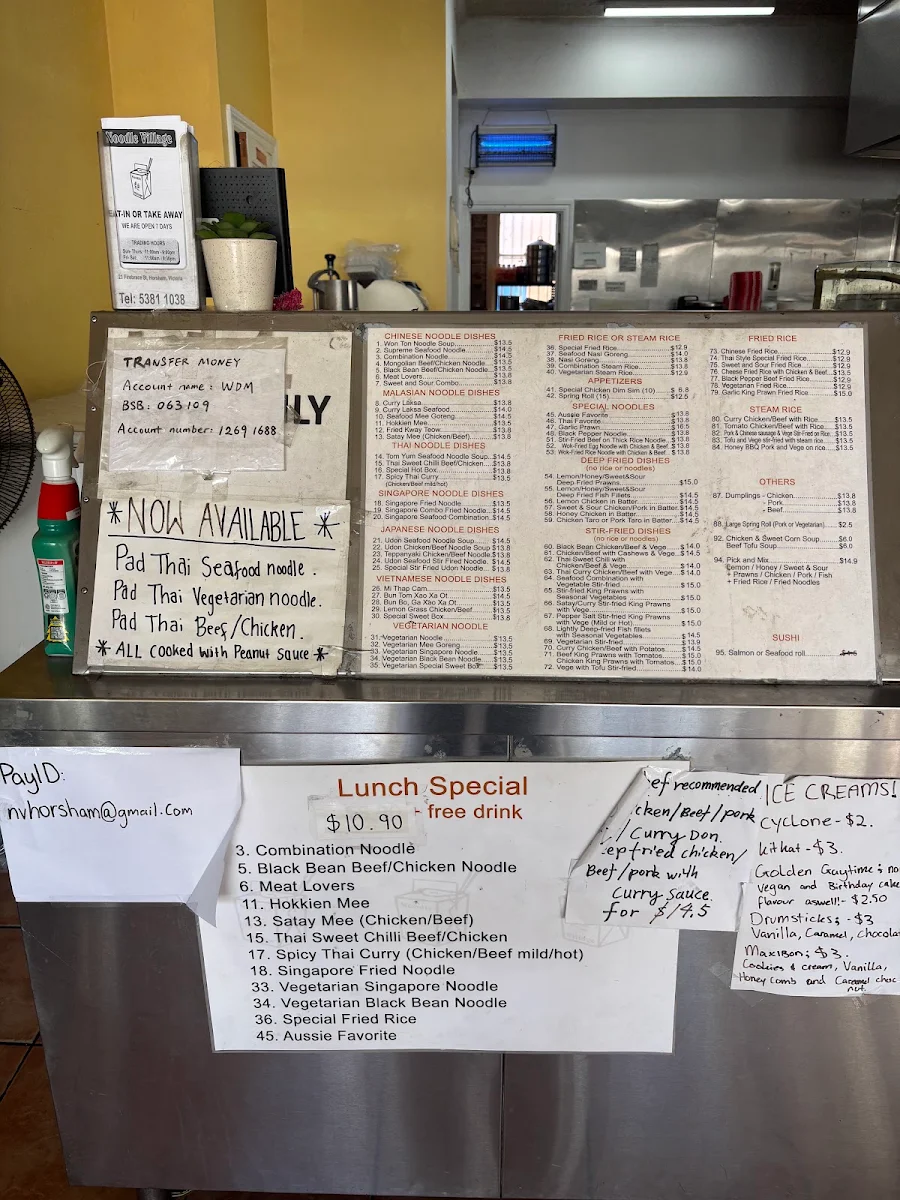 Noodle Village
EAT-IN OR TAKE AWAY
WE ARE OPEN 7 DAYS
TRADING HOURS
Tel: 5381 1038
TRANSFER MONEY
Account name: WDM
BSB: 063109
Account number: 1269 1688
LY
*NOW AVAILABLE*
Pad Thai Seafood noodle
Pad Thai Vegetarian noodle.
Pad Thai Beef/Chicken.
*ALL cooked with Peanut sauce*
CHINESE NOODLE DISHES
1. Won Ton Noodle Soup $13.5
2. Supreme Seafood Noodle $14.5
3. Combination Noodle $14.5
4. Mongolian Beef/Chicken Noodle $13.5
5. Black Bean Beef/Chicken Noodle $13.5
6. Meat Lovers $13.8
7. Sweet and Sour Combo $13.8
MALASIAN NOODLE DISHES
8. Curry Laksa $13.8
9. Curry Laksa Seafood $14.0
10. Seafood Mee Goreng $14.5
11. Hokkien Mee $13.5
12. Fried Kway Teow $13.8
13. Satay Mee (Chicken/Beef) $13.8
THAI NOODLE DISHES
14. Tom Yum Seafood Noodle Soup $14.5
15. Thai Sweet Chilli Beef/Chicken $13.8
16. Special Hot Box $13.8
17. Spicy Thai Curry $13.5
(Chicken/Beef mild/hot)
SINGAPORE NOODLE DISHES
18. Singapore Fried Noodle $13.5
19. Singapore Combo Fried Noodle $14.5
20. Singapore Seafood Combination $14.5
JAPANESE NOODLE DISHES
21. Udon Seafood Noodle Soup $14.5
22. Udon Chicken/Beef Noodle Soup $13.8
23. Teppanyaki Chicken/Beef Noodle $13.8
24. Udon Seafood Stir Fired Noodle $14.5
25. Special Stir Fried Udon Noodle $13.8
VIETNAMESE NOODLE DISHES
26. Mi Thap Cam $13.5
27. Bun Tom Xao Xa Ot $14.5
28. Bun Bo, Ga Xao Xa Ot $13.5
29. Lemon Grass Chicken/Beef $13.5
30. Special Sweet Box $13.8
VEGETARIAN NOODLE
31. Vegetarian Noodle $13.5
32. Vegetarian Mee Goreng $13.5
33. Vegetarian Singapore Noodle $13.5
34. Vegetarian Black Bean Noodle $13.5
35. Vegetarian Special Sweet Box $13.5
FRIED RICE OR STEAM RICE
36. Special Fried Rice $12.9
37. Seafood Nasi Goreng $14.0
38. Nasi Goreng $13.8
39. Combination Steam Rice $13.8
40. Vegetarian Steam Rice $12.9
APPETIZERS
41. Special Chicken Dim Sim (10) $ 6.8
42. Spring Roll (15) $12.5
SPECIAL NOODLES
45. Aussie Favorite $13.8
46. Thai Favorite $13.8
47. Garlic Prawn $16.5
49. Black Pepper Noodle $13.8
51. Stir-Fried Beef on Thick Rice Noodle $13.8
52. Wok-Fried Egg Noodle with Chicken & Beef $13.8
53. Wok-Fried Rice Noodle with Chicken & Beef $13.8
DEEP FRIED DISHES
(no rice or noodles)
54. Lemon/Honey/Sweet&Sour
Deep Fried Prawns $15.0
55. Lemon/Honey/Sweet&Sour
Deep Fried Fish Fillets $14.5
56. Lemon Chicken in Batter $14.5
57. Sweet & Sour Chicken/Pork in Batter $14.5
58. Honey Chicken in Batter $14.5
59. Chicken Taro or Pork Taro in Batter $14.5
STIR-FRIED DISHES
(no rice or noodles)
60. Black Bean Chicken/Beef & Vege $14.0
61. Chicken/Beef with Cashews & Vege $14.5
62. Thai Sweet Chilli with
Chicken/Beef & Vege $14.0
63. Thai Curry Chicken/Beef with Vege $14.0
64. Seafood Combination with
Vegetable Stir-fried $15.0
65. Stir-Fried King Prawns with
Seasonal Vegetables $15.0
66. Satay/Curry Stir-fried King Prawns
with Vege $15.0
67. Pepper Salt Stir-fried King Prawns
with Vege (Mild or Hot) $15.0
68. Lightly Deep-fried Fish fillets
with Seasonal Vegetables $14.5
69. Vegetarian Stir-fried $13.9
70. Curry Chicken/Beef with Potatos $14.5
71. Beef King Prawns with Tomatos $15.0
Chicken King Prawns with Tomatos $15.0
72. Vege with Tofu Stir-fried $14.0
FRIED RICE
73. Chinese Fried Rice $12.9
74. Thai Style Special Fried Rice $12.9
75. Sweet and Sour Fried Rice $13.5
76. Cheese Fried Rice with Chicken & Beef $13.5
77. Black Pepper Beef Fried Rice $12.9
78. Vegetarian Fried Rice $12.9
79. Garlic King Prawn Fried Rice $15.0
STEAM RICE
80. Curry Chicken/Beef with Rice $13.5
81. Tomato Chicken/Beef with Rice $13.5
82. Pork & Chinese sausage & Vege Stir-Fried or Rice $13.5
83. Tofu and Vege stir-fried with steam rice $13.5
84. Honey BBQ Pork and Vege on rice $13.5
OTHERS
87. Dumplings - Chicken $13.8
- Pork $13.8
- Beef $13.8
88. Large Spring Roll (Pork or Vegetarian) $2.5
92. Chicken & Sweet Corn Soup $6.0
Beef Tofu Soup $6.0
94. Pick and Mix $14.9
Lemon / Honey / Sweet & Sour
+ Prawns / Chicken / Pork / Fish
+ Fried Rice / Fried Noodles
SUSHI
95. Salmon or Seafood roll
PayID:
nvhorsham@gmail.com
Lunch Special
$10.90 - free drink
3. Combination Noodle
5. Black Bean Beef/Chicken Noodle
6. Meat Lovers
11. Hokkien Mee
13. Satay Mee (Chicken/Beef)
15. Thai Sweet Chilli Beef/Chicken
17. Spicy Thai Curry (Chicken/Beef mild/hot)
18. Singapore Fried Noodle
33. Vegetarian Singapore Noodle
34. Vegetarian Black Bean Noodle
36. Special Fried Rice
45. Aussie Favorite
ef recommended
cken/Beef/pork
/ Curry Don
epfried chicken/
Beef/pork with
Curry sauce
for $14.5
ICE CREAMS!
Cyclone - $2.
kitkat - $3.
Golden Gaytime; no
vegan and Birthday cake
flavour aswell! - $2.50
Drumsticks; - $3
Vanilla, Caramel, chocola
Maxibon; $3.
Cookies & cream, Vanilla,
Honeycomb and Caramel choc
nut.